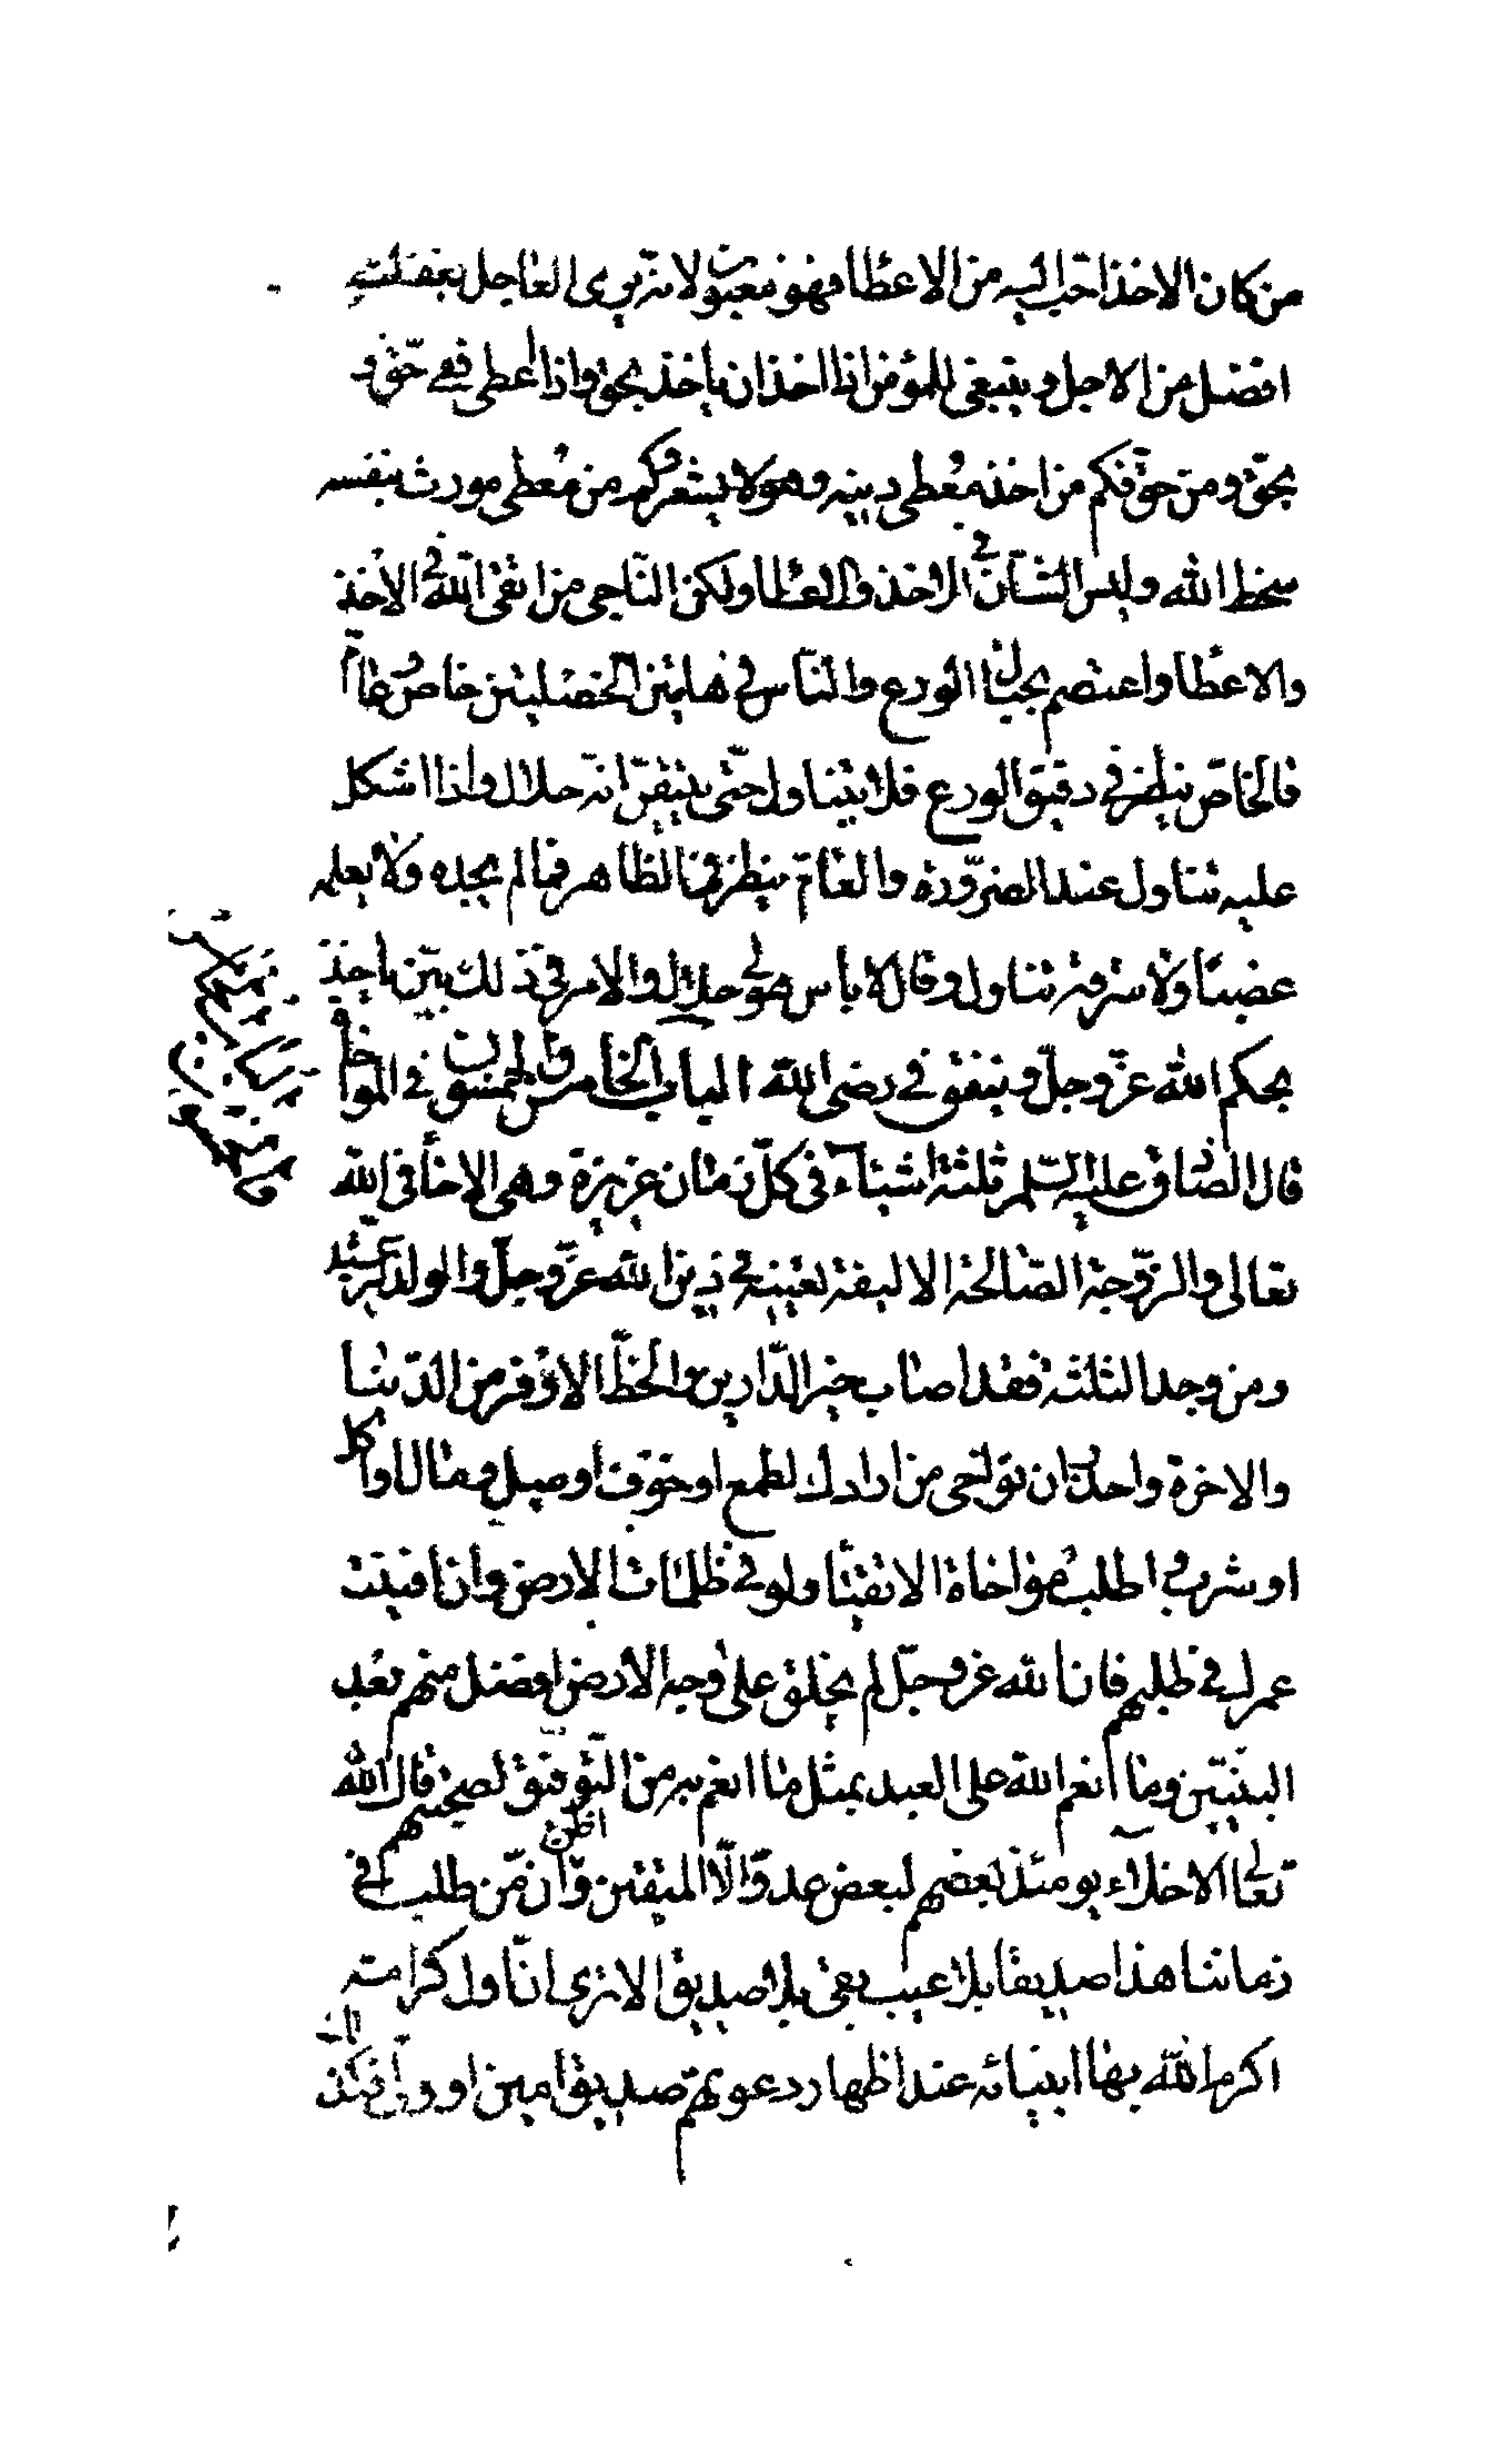 من كان الاخذ احب اليه من الاعطا فهو مغبون لانه يرى العاجل بغفلته
افضل من الاجل وينبغى للمؤمن اذا اخذ ان ياخذ بحق واذا اعطى ففى حق و
بحق ومن حق فكم من اخذ معطى دينه وهو لا يشعر وكم من معطى مورث بنفسه
سخط الله وليس الشأن فى الاخذ والعطا ولكن الناجى من اتقى الله فى الاخذ
والاعطا واعتصم بحبال الورع والناس فى هاتين الخصلتين خاص وعام
فالخاص ينظر فى دقيق الورع فلا يتناول حتى يتيقن انه حلال واذا اشكل
عليه تناول عند الضرورة والعام ينظر فى الظاهر فما لم يجده ولا يعلمه
غصبا ولا سرقة تناول وقال لا باس هو لى حلال والامر فى ذلك بين ياخذ
بحكم الله عز وجل وينفق فى رضى الله الباب الخامس والخمسون فى المواخاة
قال الصادق عليه السلم ثلثة اشياء فى كل زمان عزيزة وهى الاخاء فى الله
تعالى والزوجة الصالحة الاليفة تعينه فى دين الله عز وجل والولد الرشيد
ومن وجد الثلثة فقد اصاب خير الدارين والحظ الاوفر من الدنيا
والاخرة واحذر ان تواخى من ارادك لطمع او خوف او ميل او مال او اكل
او شرب واطلب مؤاخاة الاتقياء ولو فى ظلمات الارض وان افنيت
عمرك فى طلبهم فان الله عز وجل لم يخلق على وجه الارض افضل منهم بعد
النبيين وما انعم الله على العبد بمثل ما انعم به من التوفيق لصحبتهم قال الله
تعالى الاخلاء يومئذ بعضهم لبعض عدو الا المتقين واظن ان من طلب فى
زماننا هذا صديقا بلا عيب بقى بلا صديق الا ترى ان اول كرامة
اكرم الله بها انبيائه عند اظهار دعوتهم صديق امين او ولى فكذلك